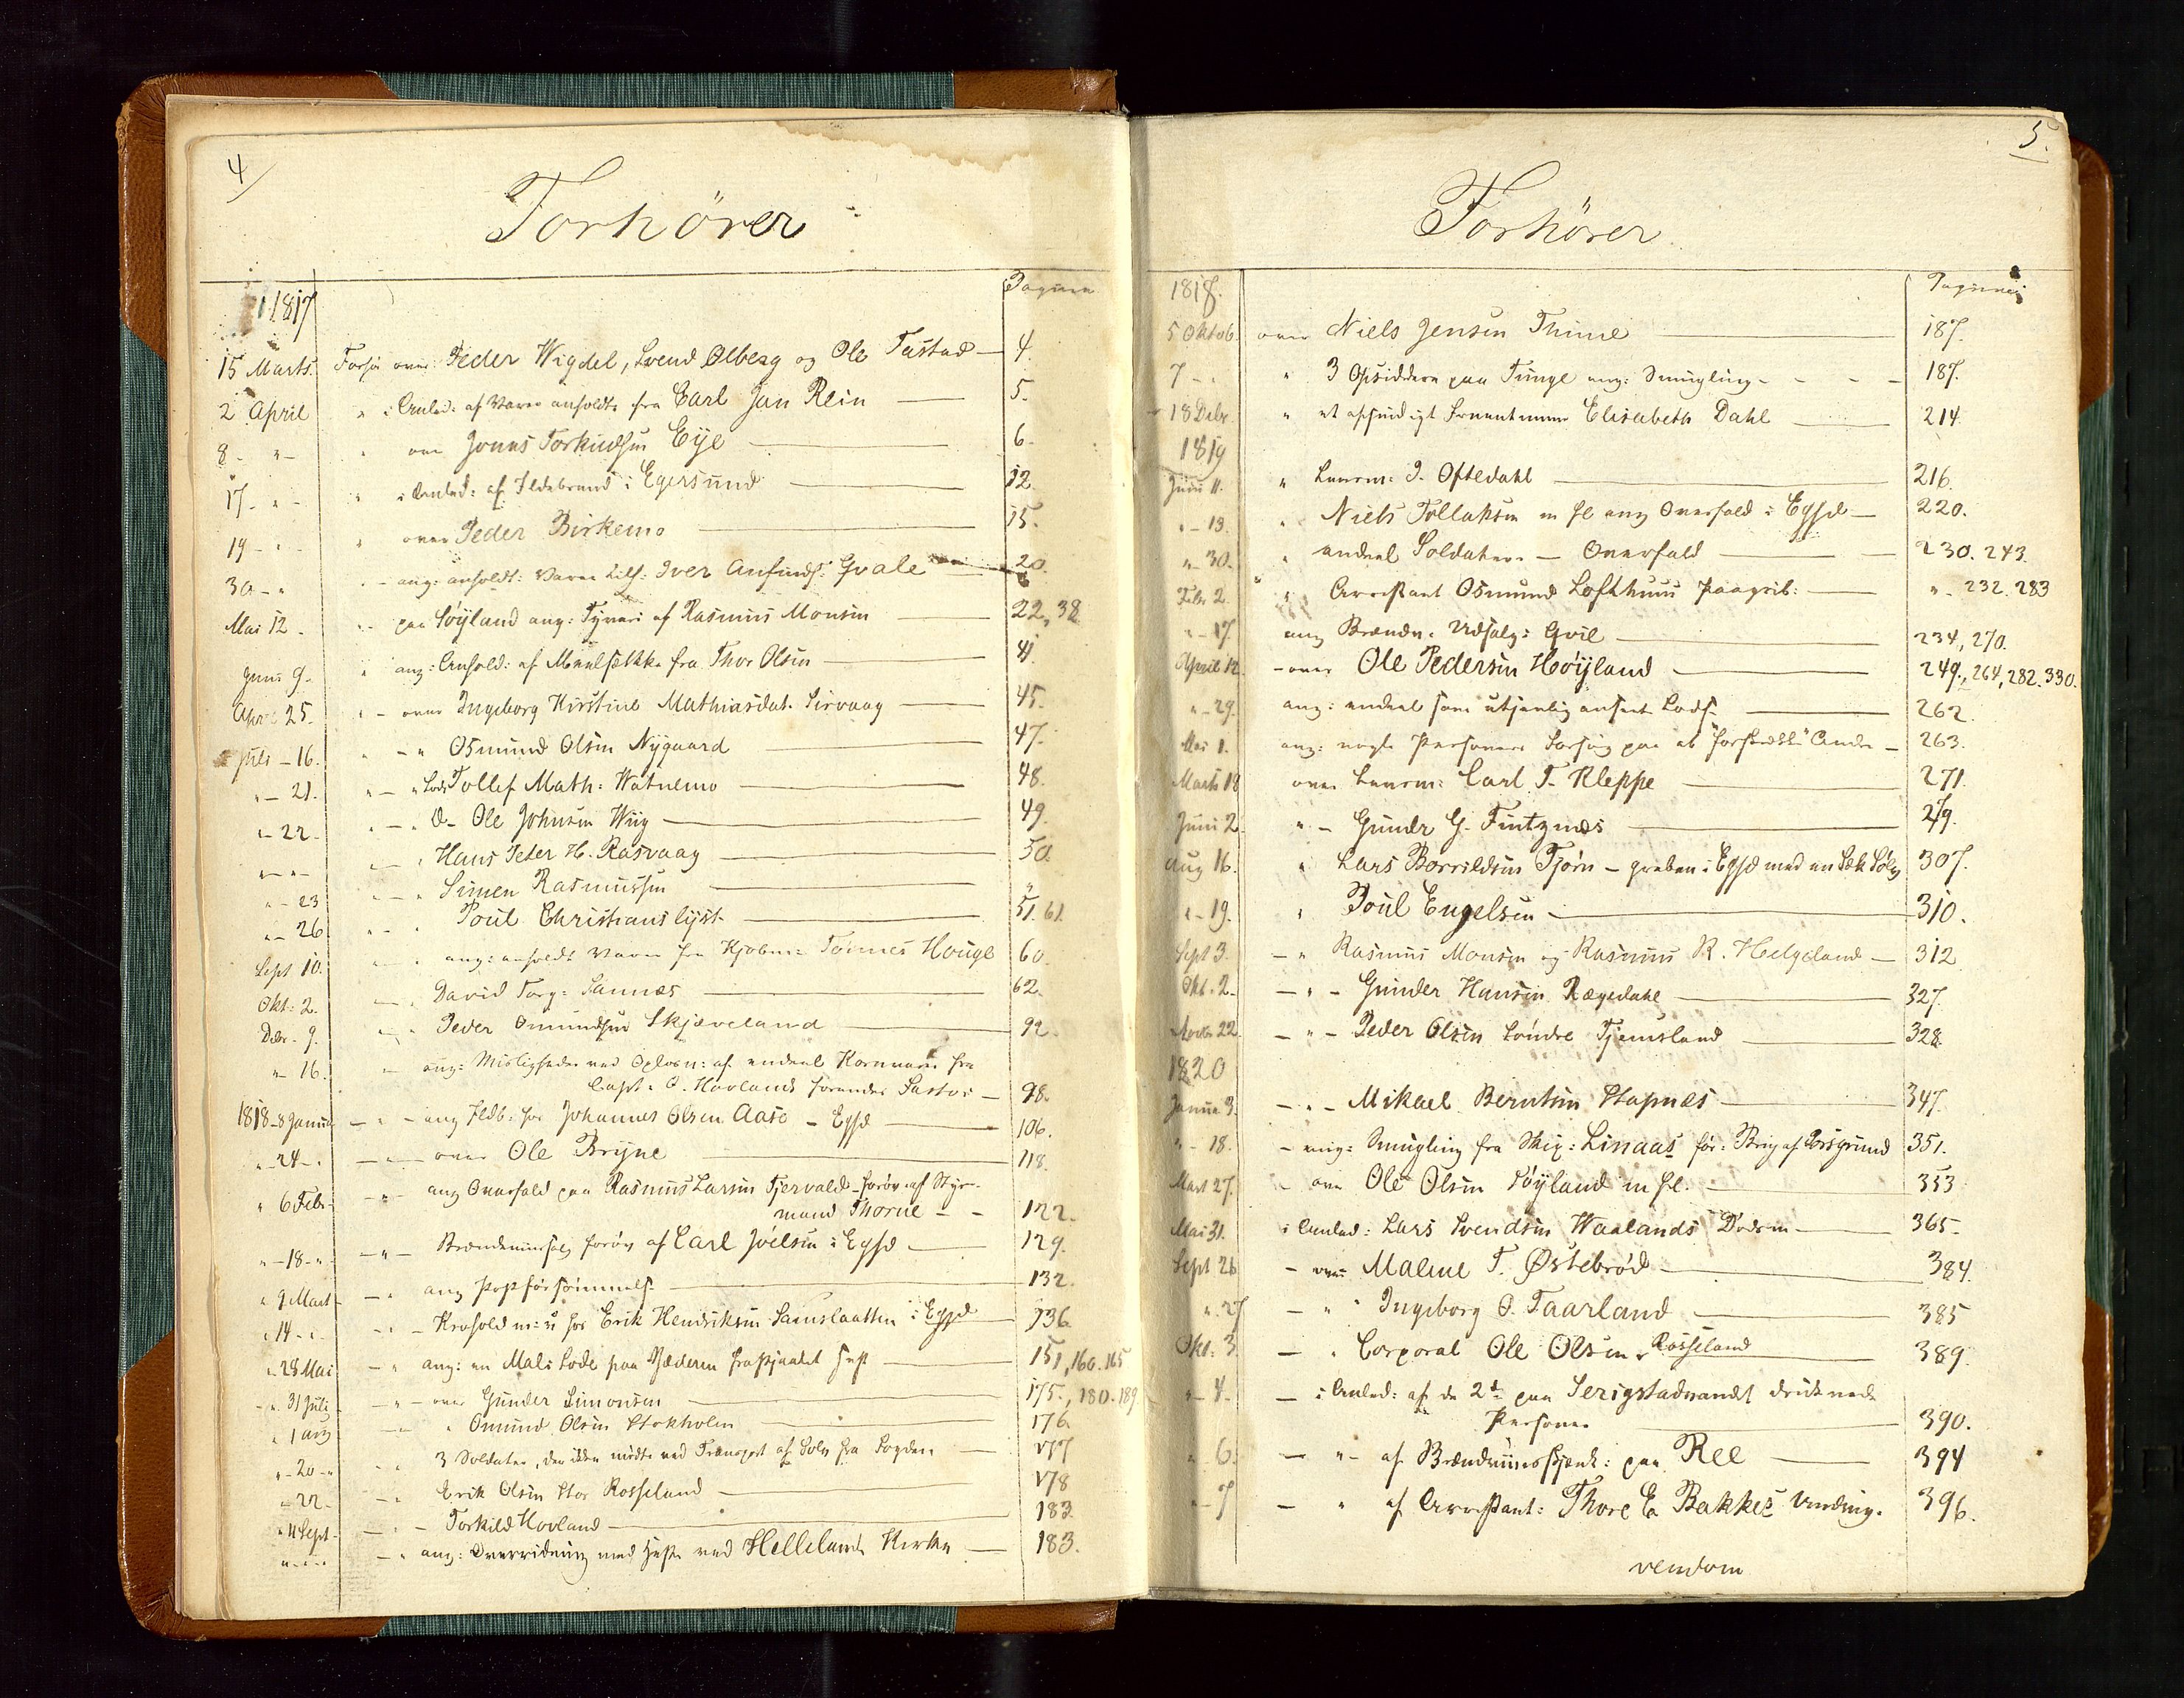 4/
Forhörer
1817
Pagina
15 Marts. Forhör over Peder Wigdel, Svend Olberg og Ole Tastad — 4.
2 April " i Anled: af Varer anholdte fra Carl Jan Rein — 5.
8 - " - " over Jonas Torkildsen Eye — 6.
17 - " - " i Anled: af Ildebrand i Egersund — 12.
19 - " - " over Peder Birkemo — 15.
30 - " " - ang: anholdt: Varer tilh: Iver Anfinds: Qvale — 20.
Mai 12 - " - paa Söyland ang: Tyveri af Rasmus Monsen — 22, 38
Juni 9 - " ang: Anhold: af Meelsække fra Thor Olsen — 41.
Apr. 25. " - over Ingeborg Kirstine Mathiasdat. Sirvaag — 45.
Juli - 16. " - " Osmund Olsen Nygaard — 47.
" - 21. " - " Lods Tollef Math: Watnemo — 48.
" - 22 - " - " D- Ole Johnsen Wiig — 49.
" - " - " - " Hans Peder H. Rasvaag — 50.
" - 23 " - " Simen Rasmussen —
" - 26 " - " Poul Christianslyst — 51. 61.
Sept 10. " - " ang: anholdt Varer fra Kjöbm: Tönnes Houge 60.
Okt: 2. — " David Torg: Sannæs — 62.
Debr. 9. " - " Peder Omundsen Skjæveland — 92.
" - 16. " ang: Misligheder ved Oplosn: af endeel Kornvarer fra
Capt: O. Hovlands forender Pastor — 98.
1818 - 8 Januar — " - ang Ildb: hos Johannes Olsen Aase - Egsd — 106.
" - 24 - " — " — over Ole Bryne — 118.
" 6 Febr - — " — ang Overfald paa Rasmus Larsen Tjervald - forøv. af Styr-
mand Thorne — - 122.
" - 18 - " - — " — Brændeviinssalg forøv af Carl Joelsen i Egsd — 129.
" 9 Mart - — " ang Postforsömmels. — 132.
" 14 - " - " - Kvashold m: v: hos Erik Hendriksen Samslaatten i Egsd 136.
" 28 Mai — " ang: en Mali Lode paa Jæderen frastjaalet Hest — 151, 160. 165
" - 31 Juli - — " — over Gunder Simonsen — 175., 180. 189
" 1 Aug — " " Omund Olsen Stokholm — 176.
" - 20 - " " " 3 Soldater, der ikke mödte ved Transport af Sølv fra Sogden — 177
" 22 - — " Erik Olsen Stor Rosseland — 178
" 4 Sept - — " — Torkild Hovland — 183.
" - " - " — " ang: Overridning med Heste ved Hellelands Kirke — 183.
5.
Forhörer
1818.
Pagina
5 Oktob. over Niels Jensen Thime — 187.
7 - " " 3 Opsiddere paa Tunge ang: Smugling - - - - 187.
18 Debr " et afsindigt Fruentimmer Elisabeth Dahl — 214
1819
Juni 11. " Lensm: J. Oftedahl — 216.
" - 19. " Niels Tollaksen m fl ang Overfald i Egsd — 220.
" - 30. " endeel Soldaters - Overfald — 230. 243.
Febr 2 " Arrestant Osmund Lofthuus Paagrib: — " - 232. 283
" - 17. ang Brændev. Udsalg: Qvil — 234, 270.
April 12 - over Ole Pedersen Höyland — 249., 264, 282. 330.
" - 29. ang: endeel som utjenlig anseet Lods. — 262.
Mai 1. ang: nogle Personers Forsög paa at "forstrække" Andre — 263.
Marts 18 over Lensm: Carl T. Kleppe — 271.
Juni 2. " - Gundr G. Fintznes — 279.
Aug 16. " Lars Borrildsen Tjörn - greben i Egsd med en Sæk Sölv 307.
" - 19. " Poul Engelsen — 310.
Sept 3. — " Rasmus Monsen og Rasmus R. Helgeland — 312
Okt. 2 - — " — Gunder Hansen Rægedahl — 327.
Novbr 22 — " — Peder Olsen Söndre Tjemsland — 328.
1820
Januar 3. — " — Mikael Berntsen Stapnæs — 347.
" - 18. — ang: Smugling fra Skip: Linaas för: Brig af Porsgrund 351.
Mart 27. — over Ole Olsen Söyland m fl. — 353
Mai 31. i Anled: Lars Svendsen Waalands Dødsm — 365 -
Sept 26 — over Malene T. Østebröd — 384.
" - 27 — " " Ingeborg O. Taarland — 385
Okt: 3. — " Corporal Ole Olsen Rosseland — 389.
" - 4. — i Anled: af de 2de paa Serigstadvandet druknede
Personer — 390.
" 6. — " - af Brændeviinsskjænk: paa Ree — 394
" - 7 — " af Arrestant: Thore E. Bakkes Undvig. 396.
vendom